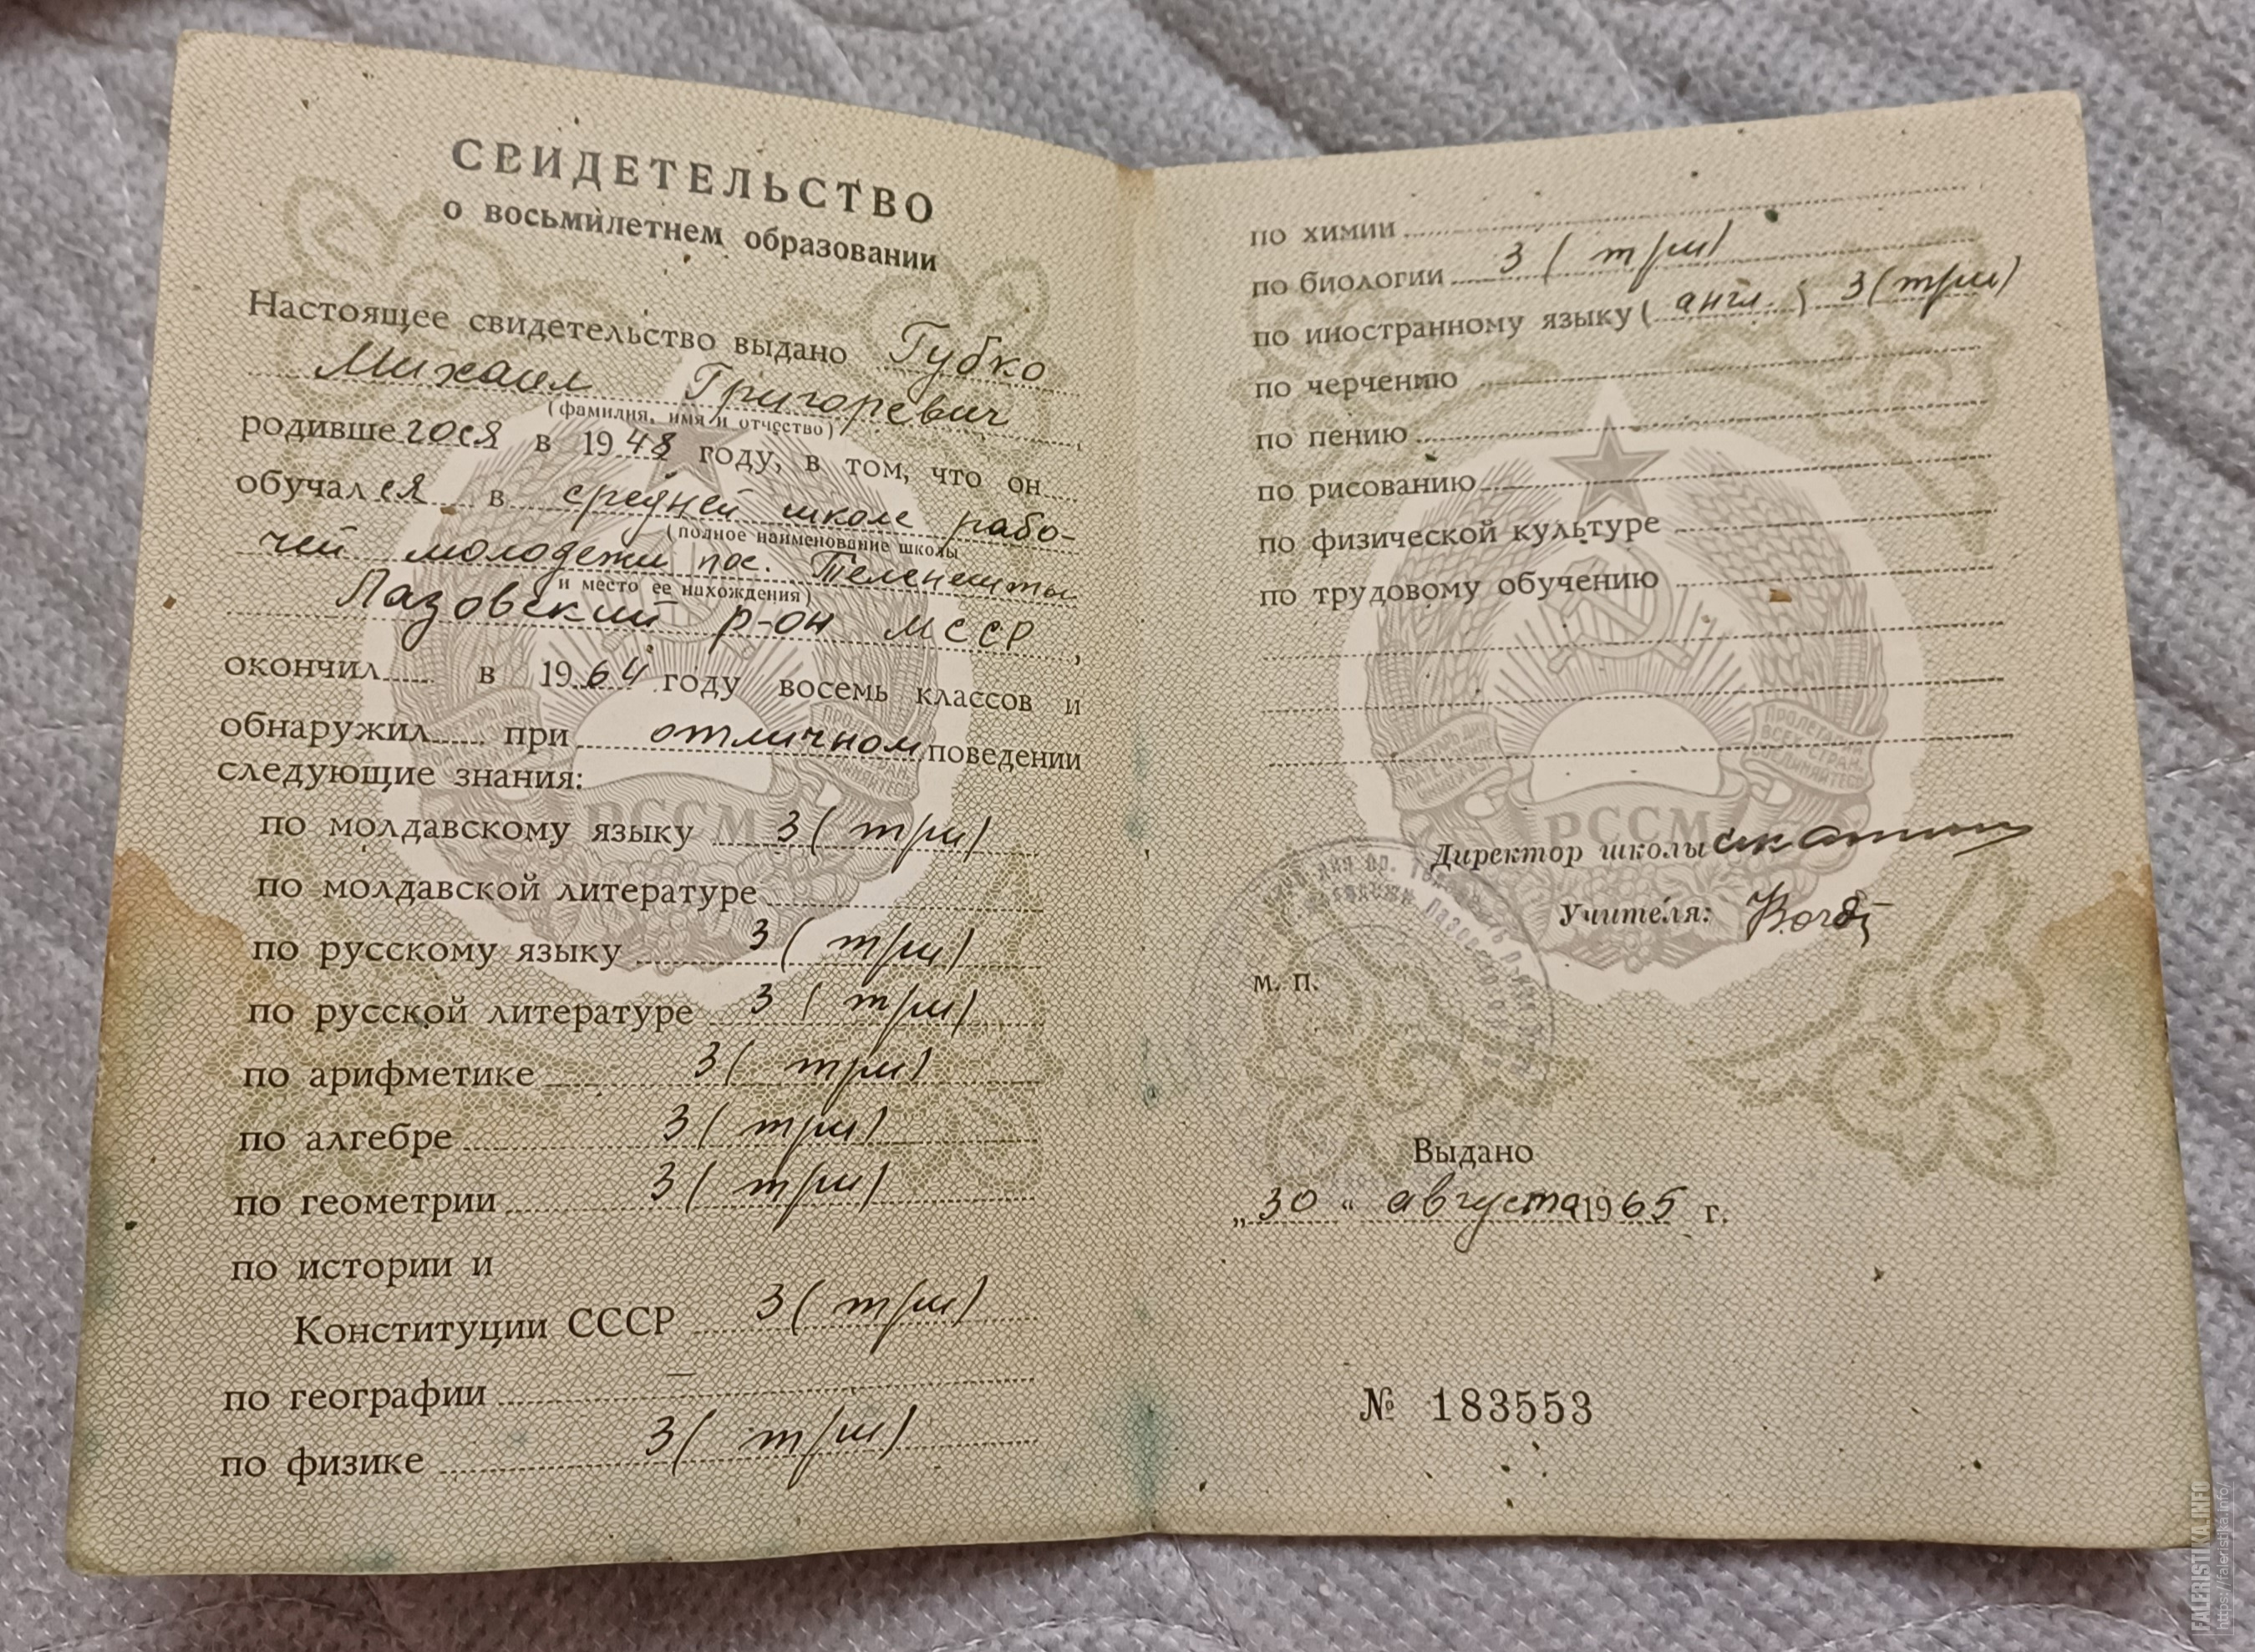 СВИДЕТЕЛЬСТВО
о восьмилетнем образовании
Настоящее свидетельство выдано Губко
Михаил Григоревич
(фамилия, имя и отчество)
родившегося в 1948 году, в том, что он
обучался в средней школе рабо-
(полное наименование школы
чей молодежи пос. Теленешты
и место ее нахождения)
Лазовский р-он МССР,
окончил в 1964 году восемь классов и
обнаружил при отличном поведении
следующие знания:
по молдавскому языку 3 (три)
по молдавской литературе
по русскому языку 3 (три)
по русской литературе 3 (три)
по арифметике 3 (три)
по алгебре 3 (три)
по геометрии 3 (три)
по истории и
Конституции СССР 3 (три)
по географии —
по физике 3 (три)
по химии
по биологии 3 (три)
по иностранному языку (англ.) 3 (три)
по черчению
по пению
по рисованию
по физической культуре
по трудовому обучению
РССМ
РССМ
Директор школы
Учителя:
м. п.
Выдано
„30“ августа 1965 г.
№ 183553
FALERISTIKA.INFO
https://faleristika.info/